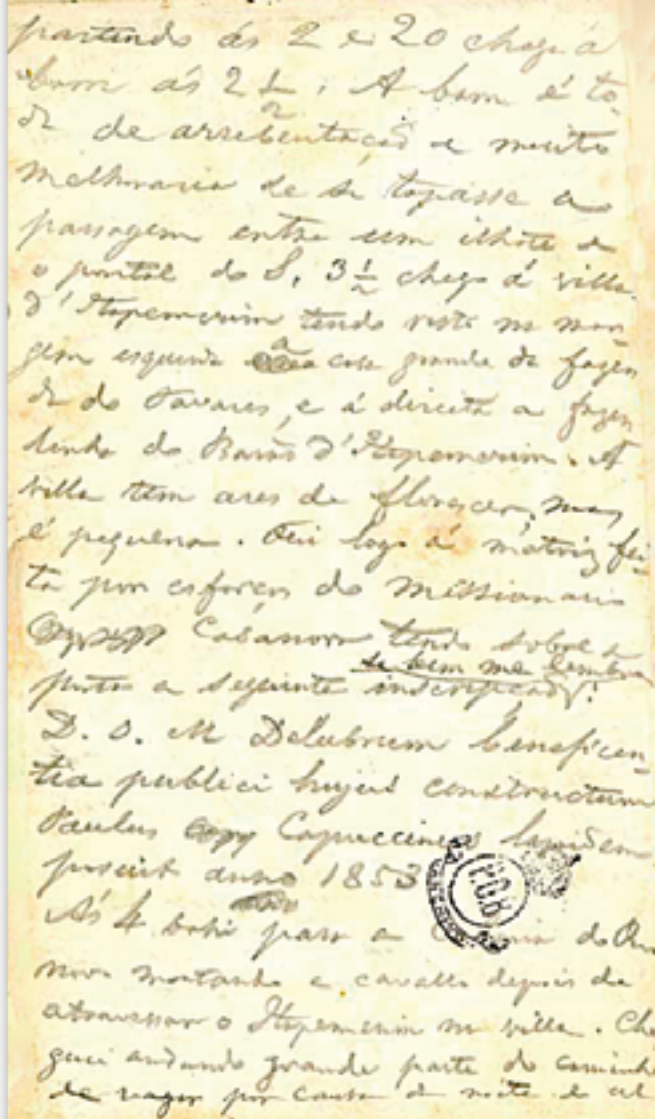 partindo ás 2 e 20 chego á
barra ás 2 1/2. A barra é to-
da de arrebentação e muito
melhoraria de si tapasse a
passagem entre um ilhote e
o pontal do S. 3 1/2 chego á villa
d'Itapemerim tendo visto na mar-
gem esquerda a casa grande da fazen
da do Tavares, e á direita a fazen
dinha do Barão d'Itapemerim. A
villa tem ares de florescer, mas
é pequena. Fui logo á matriz fei-
ta por esforços do missionario
Casanova tendo sobre a
se bem me lembro
porta a seguinte inscripção:
D. O. M Delubrum beneficen-
tia publici hujus constructum
Paulus Capuccinus lapidem
posuit anno 1853
Ás 4 parti para a do
novo montando a cavallo depois de
atravessar o Itapemerim na villa. Che
guei andando grande parte do caminho
de vagar por causa da noite e